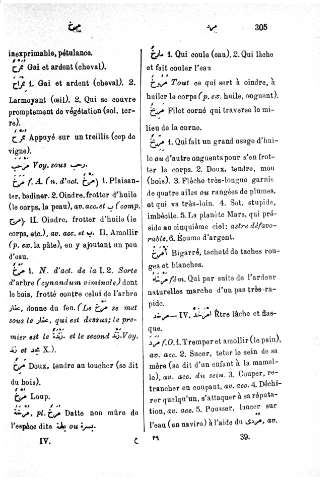 مرخ
مرد
305
inexprimable, pétulance.
مرح Gai et ardent (cheval).
مروح 1. Gai et ardent (cheval). 2.
Larmoyant (œil). 2. Qui se couvre
promptement de végétation (sol, ter-
re).
Appuyé sur un treillis (cep de
vigne).
Voy. sous رحب.
مرخ f. A. (n. d'act. مرخ) 1. Plaisan-
ter, badiner. 2. Oindre, frotter d'huile
(le corps, la peau), av. acc. et ب (comp.
). II. Oindre, frotter d'huile (le
corps, etc.), av. acc. et ب. II. Amollir
(p. ex. la pâte), en y ajoutant un peu
d'eau.
مرخ 1. N. d'act. de la I. 2. Sorte
d'arbre (cynanchum viminale) dont
le bois, frotté contre celui de l'arbre
عفار, donne du feu. (Le مرخ se met
sous le عفار, qui est dessus; le pre-
mier est le et le second زند, Voy.
زند et X.).
مرخ Doux, tendre au toucher (se dit
du bois).
Loup.
, pl. مرخ Datte non mûre de
l'espèce dite ou
IV.
1. Qui coule (eau). 2. Qui lâche
et fait couler l'eau
مروخ Tout ce qui sert à oindre, à
huiler le corps (p. ex. huile, onguent).
Pilot corné qui traverse le mi-
lieu de la corne.
1. Qui fait un grand usage d'hui-
le ou d'autre onguents pour s'en frot-
ter le corps. 2. Doux, tendre, mou
(bois). 3. Flèche très-longue garnie
de quatre ailes ou rangées de plumes,
et qui va très-loin. 4. Sot, stupide,
imbécile. 5. La planète Mars, qui pré-
side au cinquième ciel; astre défavo-
rable. 6. Écume d'argent.
Bigarré, tacheté de taches rou-
ges et blanches.
fém. Qui par suite de l'ardeur
naturelles marche d'un pas très-ra-
pide.
— IV. Être lâche et flas-
que.
مرد f. O. 1. Tremper et amollir (le pain),
av. acc. 2. Sucer, teter le sein de sa
mère (se dit d'un enfant à la mamel-
le), av. acc. du sein. 3. Couper, re-
trancher en coupant, av. acc. 4. Déchi-
rer quelqu'un, s'attaquer à sa réputa-
tion, av. acc. 5. Pousser, lancer sur
l'eau (un navire) à l'aide du مردى, av.
39.